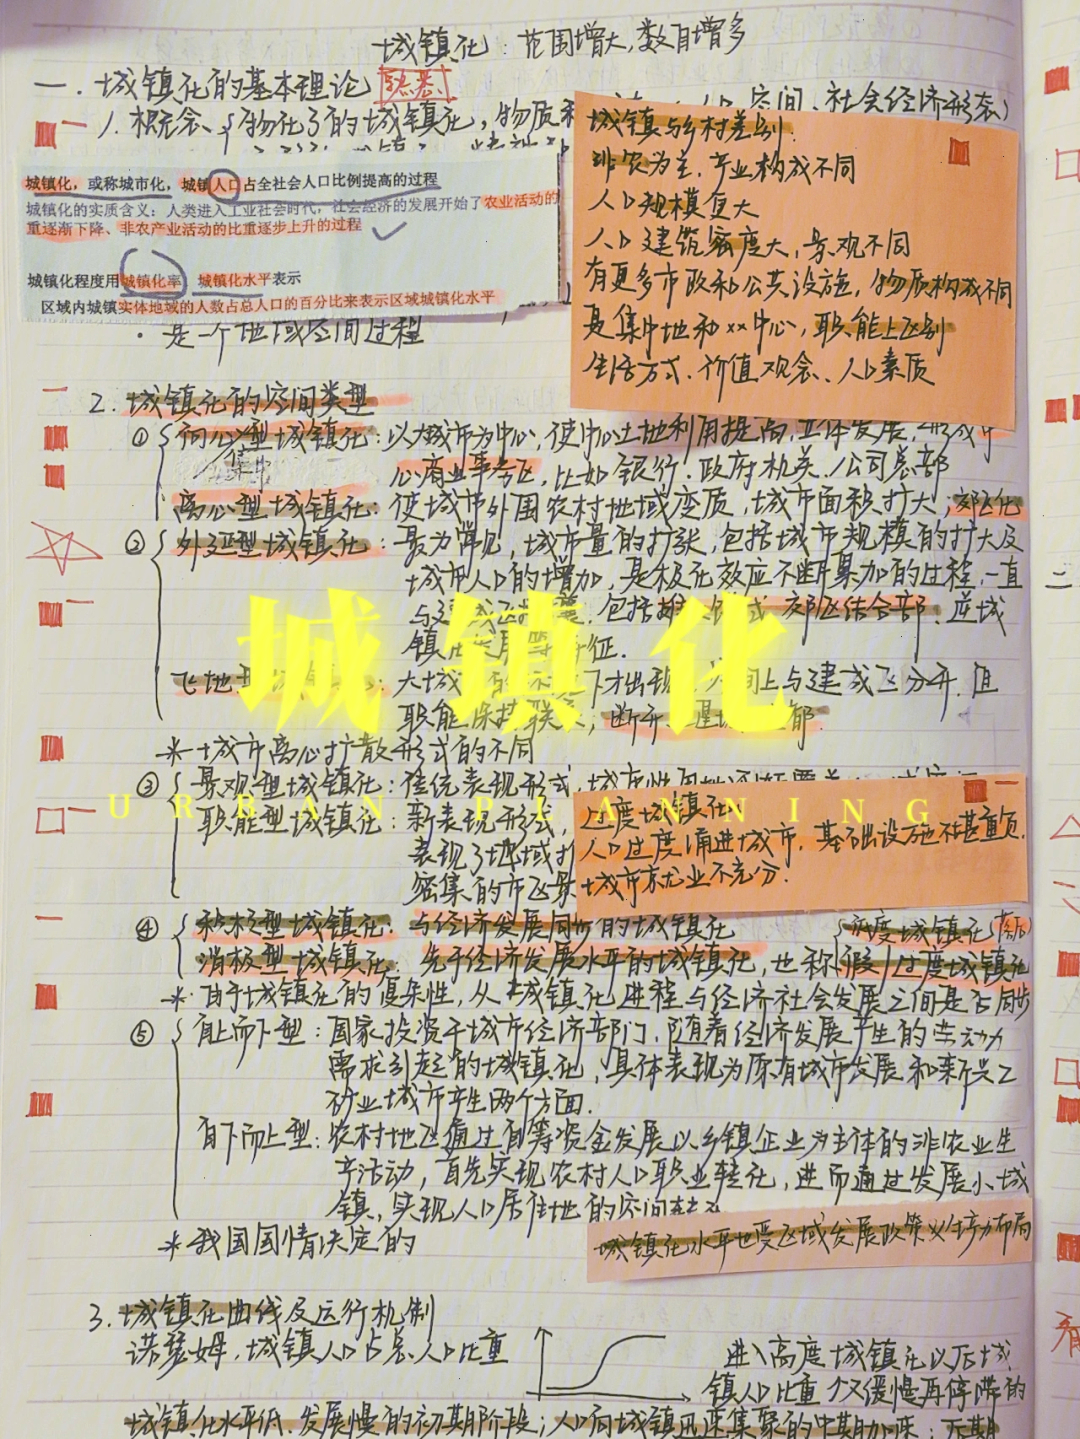 城镇化：范围增大，数目增多
一．城镇化的基本理论 熟悉
1. 概念、{物化了的城镇化，物质和 人口、空间、社会经济形态）
城镇化，或称城市化，城镇人口占全社会人口比例提高的过程
城镇化的实质含义：人类进入工业社会时代，社会经济的发展开始了农业活动的
重逐渐下降、非农产业活动的比重逐步上升的过程
城镇化程度用城镇化率 城镇化水平表示
区域内城镇实体地域的人数占总人口的百分比来表示区域城镇化水平
· 是一个地域空间过程
城镇与乡村差别．
非农为主．产业构成不同
人口规模复大
人口建筑密度大，景观不同
有更多市政和公共设施，物质构成不同
是集中地和xx中心，职能上区别
生活方式．价值观念、人口素质
2. 城镇化的空间类型
① 向心型城镇化：以大城市为中心，使中心土地利用提高，立体发展，形成中
集中
心商业事务区，比如银行．政府机关．公司总部
离心型城镇化：使城市外围农村地域变质，城市面积扩大；郊区化
② 外延型城镇化：最为常见，城市量的扩张，包括城市规模的扩大及
城市人口的增加，是极化效应不断累加的过程，一直
与建成区 包括 式 郊区结合部．逆城
镇化 征．
飞地 大城 下才出现 间上与建成区分开．但
职能保持联系；断开
*一城市离心扩散形式的不同
③ 景观型城镇化：传统表现形式，城市性
职能型城镇化：新表现形式，
表现了地域
密集的市区景
过度城镇化
人口过度涌进城市．基础设施不堪重负．
城市就业不充分．
城镇化
URBAN PLANNING
④ 积极型城镇化：与经济发展同步的城镇化
消极型城镇化：先于经济发展水平的城镇化，也称（假）过度城镇化
度城镇化
*·由于城镇化的复杂性，从城镇化进程与经济社会发展之间是否同步
⑤ 自上而下型：国家投资于城市经济部门，随着经济发展产生的劳动力
需求引起的城镇化，具体表现为原有城市发展和新兴工
矿业城市产生两个方面．
自下而上型：农村地区通过自筹资金发展以乡镇企业为主体的非农业生
产活动，首先实现农村人口职业转化，进而通过发展小城
镇，实现人口居住地的空间转化
*我国国情决定的
城镇化水平也受区域发展政策 布局
3. 城镇化曲线及运行机制
诺瑟姆．城镇人口占总人口比重
进入高度城镇化以后城
镇人口比重 又缓慢再停滞的
城镇化水平低．发展慢的初期阶段；人口向城镇迅速集聚的中期加速；后期